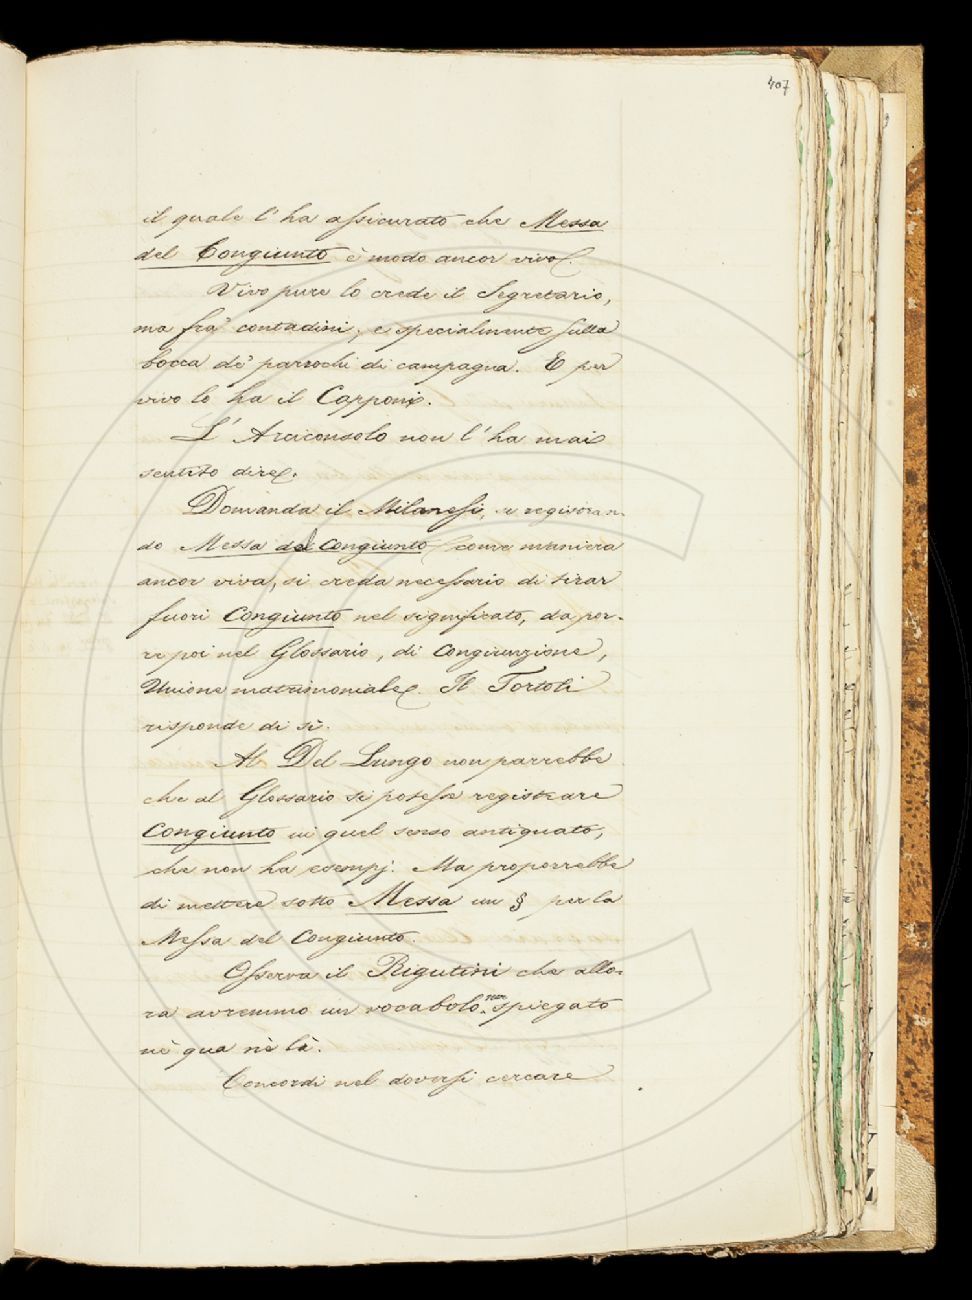 407
il quale l'ha assicurato che Messa
del Congiunto è modo ancor vivo.
Vivo pure lo crede il Segretario,
ma fra' contadini, e specialmente sulla
bocca de' parrochi di campagna. E per
vivo lo ha il Capponi.
L'Arciconsolo non l'ha mai
sentito dire.
Domanda il Milanesi, se registran-
do Messa del Congiunto come maniera
ancor viva, si creda necessario di tirar
fuori Congiunto nel significato, da por-
re poi nel Glossario, di Congiunzione,
Unione matrimoniale. Il Tortoli
risponde di sì.
Al Del Lungo non parrebbe
che al Glossario si potesse registrare
Congiunto in quel senso antiquato,
che non ha esempj. Ma proporrebbe
di mettere sotto Messa un § per la
Messa del Congiunto.
Osserva il Rigutini che allo-
ra avremmo un vocabolo non spiegato
nè qua nè là.
Concordi nel doversi cercare